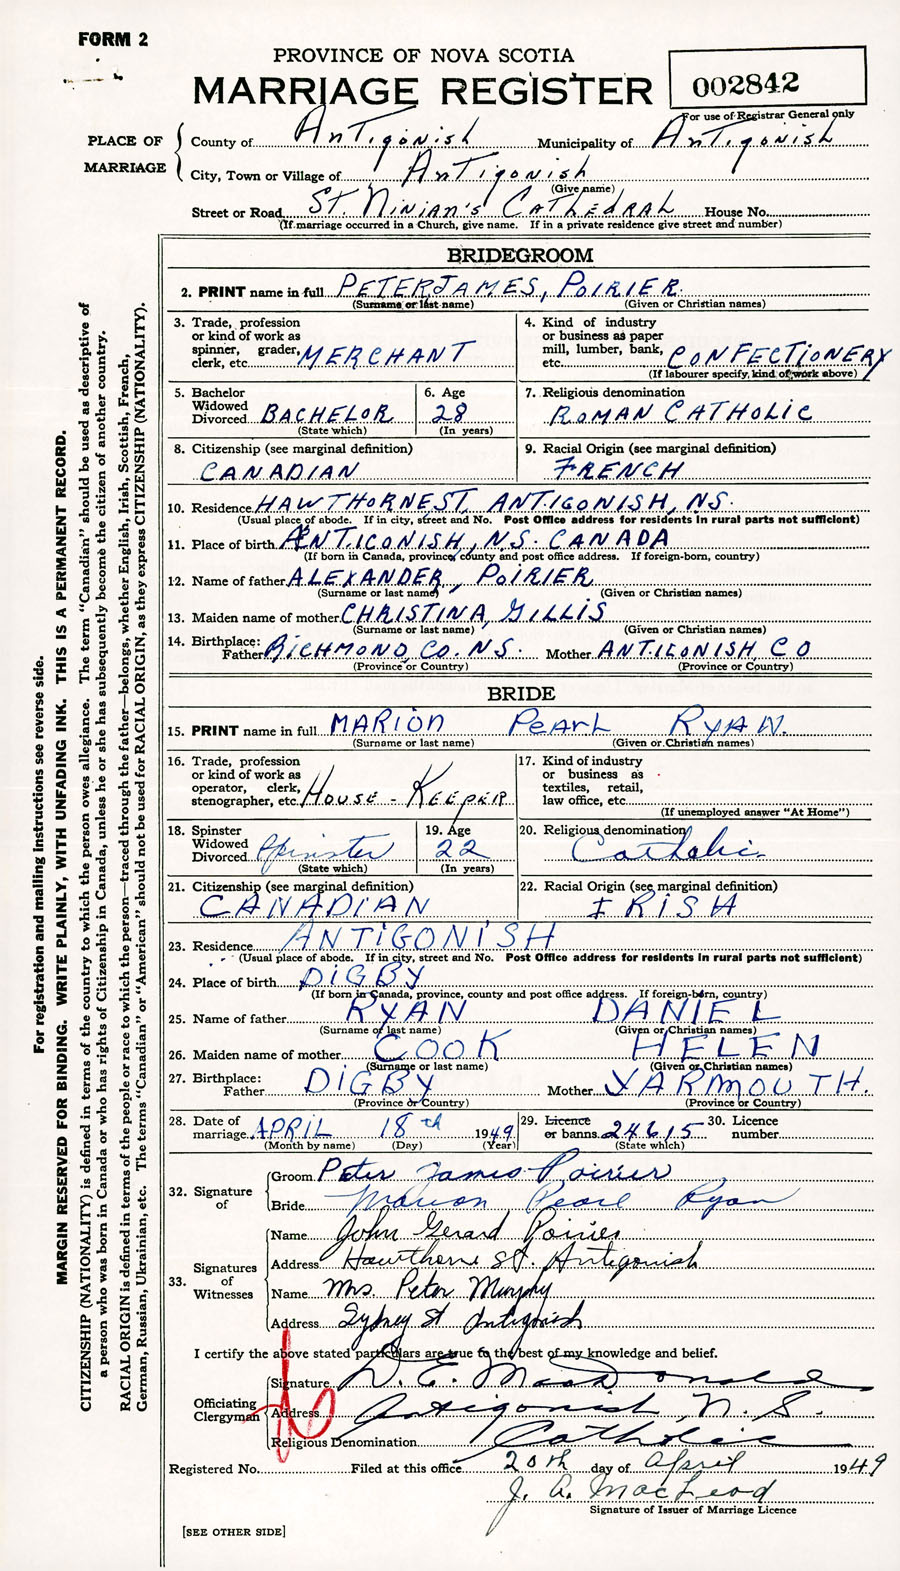 FORM 2
PROVINCE OF NOVA SCOTIA
MARRIAGE REGISTER
002842
For use of Registrar General only
PLACE OF MARRIAGE
County of Antigonish Municipality of Antigonish
City, Town or Village of Antigonish
(Give name)
Street or Road St. Ninian's Cathedral House No.
(If marriage occurred in a Church, give name. If in a private residence give street and number)
BRIDEGROOM
2. PRINT name in full PETER JAMES, POIRIER
(Surname or last name) (Given or Christian names)
3. Trade, profession
or kind of work as
spinner, grader,
clerk, etc. MERCHANT
4. Kind of industry
or business as paper
mill, lumber, bank,
etc. CONFECTIONERY
(If labourer specify, kind of work above)
5. Bachelor
Widowed
Divorced BACHELOR
(State which)
6. Age
28
(In years)
7. Religious denomination
ROMAN CATHOLIC
8. Citizenship (see marginal definition)
CANADIAN
9. Racial Origin (see marginal definition)
FRENCH
10. Residence HAWTHORNE ST, ANTIGONISH, NS.
(Usual place of abode. If in city, street and No. Post Office address for residents in rural parts not sufficient)
11. Place of birth ANTIGONISH, N.S. CANADA
(If born in Canada, province, county and post office address. If foreign-born, country)
12. Name of father ALEXANDER, POIRIER
(Surname or last name) (Given or Christian names)
13. Maiden name of mother CHRISTINA, GILLIS
(Surname or last name) (Given or Christian names)
14. Birthplace:
Father RICHMOND, CO. NS. Mother ANTIGONISH, CO
(Province or Country) (Province or Country)
BRIDE
15. PRINT name in full MARION PEARL RYAN.
(Surname or last name) (Given or Christian names)
16. Trade, profession
or kind of work as
operator, clerk,
stenographer, etc. HOUSE-KEEPER
17. Kind of industry
or business as
textiles, retail,
law office, etc.
(If unemployed answer "At Home")
18. Spinster
Widowed
Divorced Spinster
(State which)
19. Age
22
(In years)
20. Religious denomination
Catholic
21. Citizenship (see marginal definition)
CANADIAN
22. Racial Origin (see marginal definition)
IRISH
23. Residence ANTIGONISH
(Usual place of abode. If in city, street and No. Post Office address for residents in rural parts not sufficient)
24. Place of birth DIGBY
(If born in Canada, province, county and post office address. If foreign-born, country)
25. Name of father RYAN DANIEL
(Surname or last name) (Given or Christian names)
26. Maiden name of mother COOK HELEN
(Surname or last name) (Given or Christian names)
27. Birthplace:
Father DIGBY Mother YARMOUTH.
(Province or Country) (Province or Country)
28. Date of
marriage APRIL 18th 1949
(Month by name) (Day) (Year)
29. Licence
or banns 24615
(State which)
30. Licence
number
32. Signature of
Groom Peter James Poirier
Bride Marion Pearl Ryan
33. Signatures of Witnesses
Name John Gerard Poirier
Address Hawthorne St. Antigonish
Name Mrs Peter Murphy
Address Sydney St Antigonish
I certify the above stated particulars are true to the best of my knowledge and belief.
Officiating Clergyman
Signature D. E. MacDonald
Address Antigonish, N. S.
Religious Denomination Catholic
Registered No. Filed at this office 20th day of April 1949
J. A. MacLeod
Signature of Issuer of Marriage Licence
[SEE OTHER SIDE]
For registration and mailing instructions see reverse side.
MARGIN RESERVED FOR BINDING. WRITE PLAINLY, WITH UNFADING INK. THIS IS A PERMANENT RECORD.
CITIZENSHIP (NATIONALITY) is defined in terms of the country to which the person owes allegiance. The term "Canadian" should be used as descriptive of
a person who was born in Canada or who has rights of Citizenship in Canada, unless he or she has subsequently become the citizen of another country.
RACIAL ORIGIN is defined in terms of the people or race to which the person—traced through the father—belongs, whether English, Irish, Scottish, French,
German, Russian, Ukrainian, etc. The terms "Canadian" or "American" should not be used for RACIAL ORIGIN, as they express CITIZENSHIP (NATIONALITY).